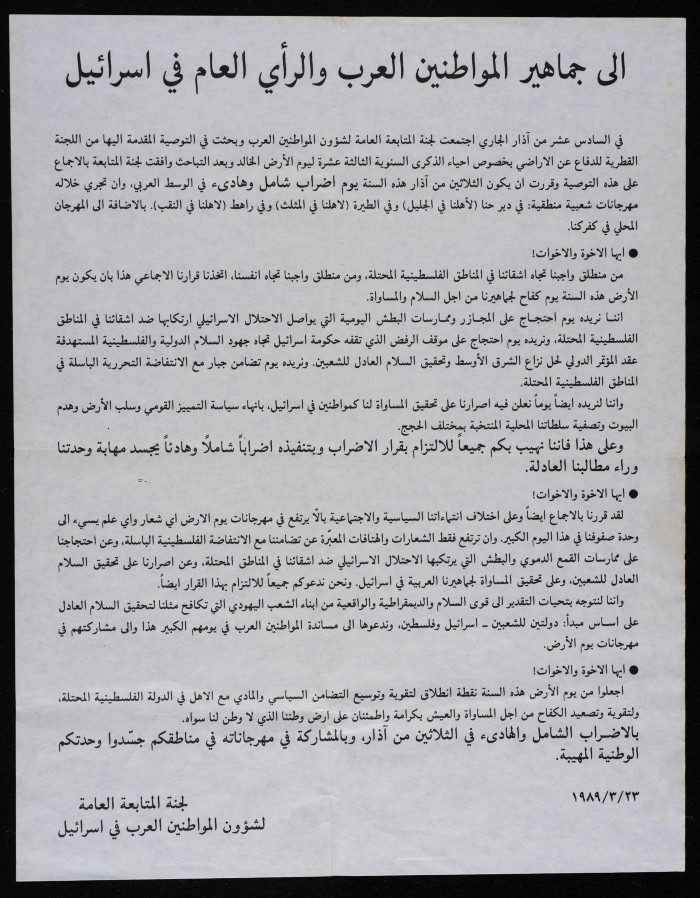 الى جماهير المواطنين العرب والرأي العام في اسرائيل
في السادس عشر من آذار الجاري اجتمعت لجنة المتابعة العامة لشؤون المواطنين العرب وبحثت في التوصية المقدمة اليها من اللجنة
القطرية للدفاع عن الاراضي بخصوص احياء الذكرى السنوية الثالثة عشرة ليوم الأرض الخالد وبعد التباحث وافقت لجنة المتابعة بالاجماع
على هذه التوصية وقررت ان يكون الثلاثين من آذار هذه السنة يوم اضراب شامل وهادىء في الوسط العربي، وان تجري خلاله
مهرجانات شعبية منطقية: في دير حنا (لأهلنا في الجليل) وفي الطيرة (لاهلنا في المثلث) وفي راهط (لاهلنا في النقب). بالاضافة الى المهرجان
المحلي في كفركنا.
● ايها الاخوة والاخوات!
من منطلق واجبنا تجاه اشقائنا في المناطق الفلسطينية المحتلة، ومن منطلق واجبنا تجاه انفسنا، اتخذنا قرارنا الاجماعي هذا بان يكون يوم
الأرض هذه السنة يوم كفاح لجماهيرنا من اجل السلام والمساواة.
اننـا نريده يوم احتجـاج على المجـازر وممـارسات البطش اليومية التي يواصل الاحتلال الاسرائيلي ارتكابها ضد اشقائنا في المناطق
الفلسطينية المحتلة، ونريده يوم احتجاج على موقف الرفض الذي تقفه حكومة اسرائيل تجاه جهود السلام الدولية والفلسطينية المستهدفة
عقد المؤتمر الدولي لحل نزاع الشرق الأوسط وتحقيق السلام العادل للشعبين. ونريده يوم تضامن جبار مع الانتفاضة التحررية الباسلة في
المناطق الفلسطينية المحتلة.
واننا لنريده ايضاً يوماً نعلن فيه اصرارنا على تحقيق المساواة لنا كمواطنين في اسرائيل، بانهاء سياسة التمييز القومي وسلب الأرض وهدم
البيوت وتصفية سلطاتنا المحلية المنتخبة بمختلف الحجج.
وعلى هذا فاننا نهيب بكم جميعاً للالتزام بقرار الاضراب وبتنفيذه اضراباً شاملاً وهادئاً يجسد مهابة وحدتنا
وراء مطالبنا العادلة.
● ايها الاخوة والاخوات!
لقد قررنا بالاجماع ايضاً وعلى اختلاف انتماءاتنا السياسية والاجتماعية بالّا يرتفع في مهرجانات يوم الارض اي شعار واي علم يسيء الى
وحدة صفوفنا في هذا اليوم الكبير. وان ترتفع فقط الشعارات والهتافات المعبّرة عن تضامننا مع الانتفاضة الفلسطينية الباسلة، وعن احتجاجنا
على ممارسات القمع الدموي والبطش التي يرتكبها الاحتلال الاسرائيلي ضد اشقائنا في المناطق المحتلة، وعن اصرارنا على تحقيق السلام
العادل للشعبين، وعلى تحقيق المساواة لجماهيرنا العربية في اسرائيل. ونحن ندعوكم جميعاً للالتزام بهذا القرار ايضاً.
واننا لنتوجه بتحيات التقدير الى قوى السلام والديمقراطية والواقعية من ابناء الشعب اليهودي التي تكافح مثلنا لتحقيق السلام العادل
على اسـاس مبدأ: دولتين للشعبين ــ اسرائيل وفلسطين، وندعوها الى مساندة المواطنين العرب في يومهم الكبير هذا والى مشاركتهم في
مهرجانات يوم الأرض.
● ايها الاخوة والاخوات!
اجعلوا من يوم الأرض هذه السنة نقطة انطلاق لتقوية وتوسيع التضامن السياسي والمادي مع الاهل في الدولة الفلسطينية المحتلة،
ولتقوية وتصعيد الكفاح من اجل المساواة والعيش بكرامة واطمئنان على ارض وطننا الذي لا وطن لنا سواه.
بالاضـراب الشامل والهادىء في الثلاثين من آذار، وبالمشاركة في مهرجاناته في مناطقكم جسّدوا وحدتكم
الوطنية المهيبة.
١٩٨٩/٣/٢٣
لجنة المتابعة العامة
لشؤون المواطنين العرب في اسرائيل